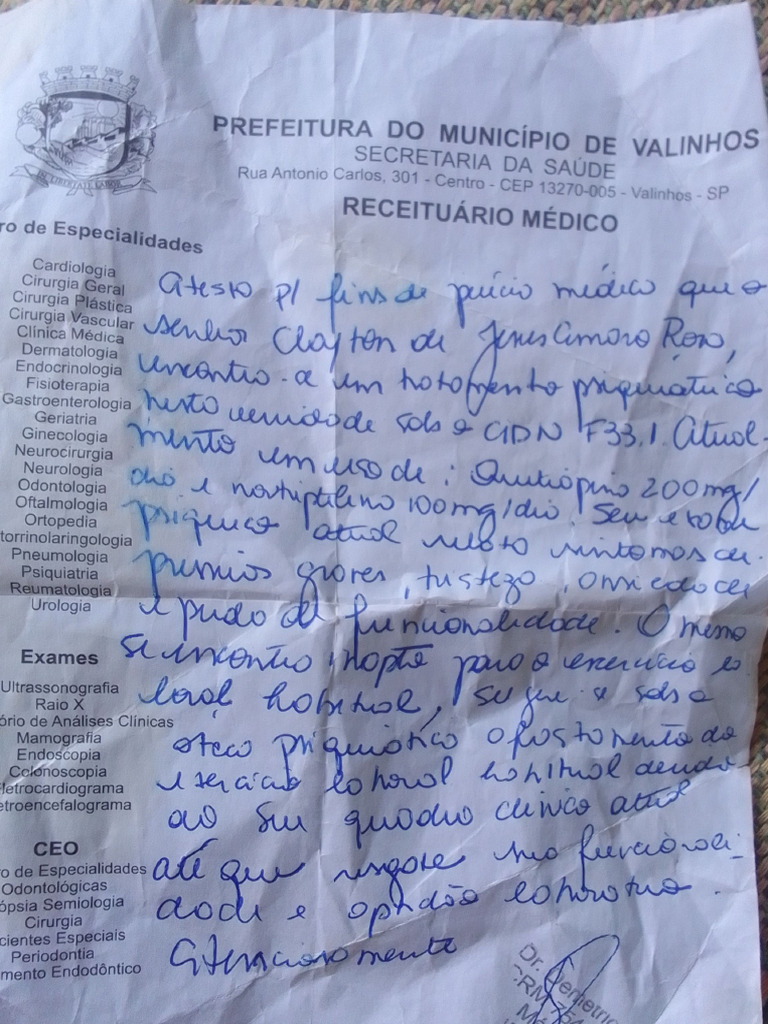 PREFEITURA DO MUNICÍPIO DE VALINHOS
SECRETARIA DA SAÚDE
Rua Antonio Carlos, 301 - Centro - CEP 13270-005 - Valinhos - SP
RECEITUÁRIO MÉDICO
ro de Especialidades
Cardiologia
Cirurgia Geral
Cirurgia Plástica
Cirurgia Vascular
Clínica Médica
Dermatologia
Endocrinologia
Fisioterapia
Gastroenterologia
Geriatria
Ginecologia
Neurocirurgia
Neurologia
Odontologia
Oftalmologia
Ortopedia
torrinolaringologia
Pneumologia
Psiquiatria
Reumatologia
Urologia
Exames
Ultrassonografia
Raio X
ório de Análises Clínicas
Mamografia
Endoscopia
Colonoscopia
letrocardiograma
etroencefalograma
CEO
ro de Especialidades
Odontológicas
ópsia Semiologia
Cirurgia
cientes Especiais
Periodontia
mento Endodôntico
Atesto p/ fins de perícia médica que o
senhor Clayton de Jesus Rosa,
encontra-se em tratamento psiquiátrico
nesta unidade sob o CIDN F33.1. Atual-
mente em uso de: Quetiapina 200mg/
dia e nortriptilina 100mg/dia. Seu estado
psíquico atual sintomas de-
pressivos graves, tristeza, ansiedade
e perda de funcionalidade. O mesmo
se encontra inapto para o exercício la-
boral habitual, segue-se sob a
psiquiátrico afastamento do
exercício laboral habitual devido
ao seu quadro clínico atual
até que resgate sua funcionali-
dade e aptidão laborativa.
Atenciosamente
Dr. Demetrio
CRM 754